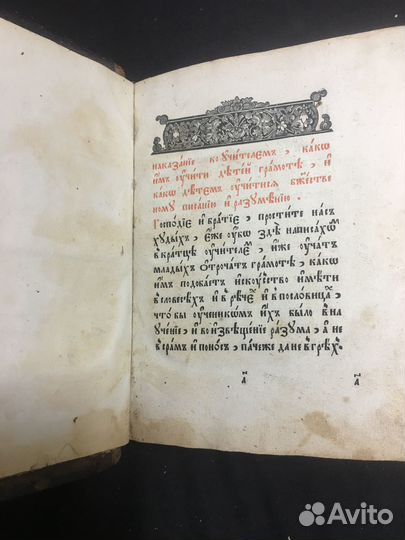 наказанїе ко ᲂучи́телемъ, ка́кѡ
и҆̀мъ ᲂучи́ти дѣте́й гра́мотѣ, и҆
ка́кѡ дѣ́темъ ᲂучи́тисѧ бж҃е́стве
ному писа́нїю и҆ разꙋмѣ́нїю.
Госпо́дїе и҆ бра́тїе, прости́те на́съ
хꙋды́хъ, е҆́же ᲂу҆́бѡ здѣ̀ написа́хѡⷨ
вкра́тцѣ ᲂучи́телеⷨ, и҆̀же ᲂуча́тъ
млады́хъ ѻ҆троча́тъ гра́мотѣ, ка́кѡ
и҆̀мъ подоба́етъ и҆скꙋ́ство и҆мѣ́ти
в словесѣ́хъ и҆ в рѣ́чеⷯ и҆ в посло́вицаⷯ,
что́бы ᲂученикѡ́мъ и҆́хъ бы́ло в на
ꙋче́нїе, и҆ во и҆звѣще́нїе ра́зꙋма, а҆ не
в сра́мъ и҆ поно́съ, па́чеже да не в грѣⷯ.
а҃ а҃
Avito